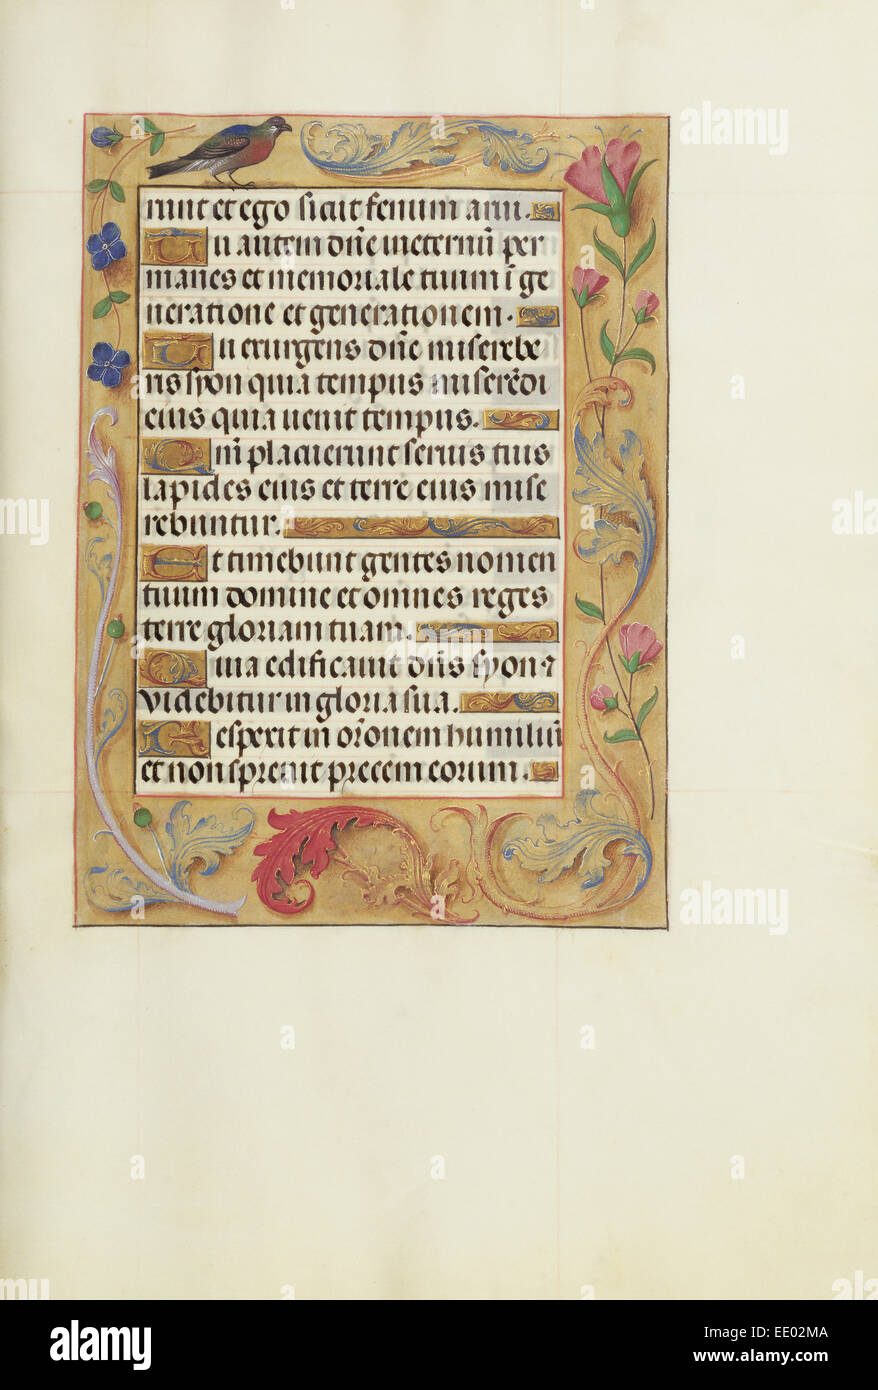 runt et ego sicut fenum arui.
Tu autem dñe ineternũ per
manes et memoriale tuum ĩ ge
neratione et generationem.
Tu exurgens dñe miserebe
ris syon quia tempus miserẽdi
eius quia uenit tempus.
Qm̃ placuerunt seruis tuis
lapides eius et terre eius mise
rebuntur.
Et timebunt gentes nomen
tuum domine et omnes reges
terre gloriam tuam.
Quia edificauit dñs syon ⁊
videbitur in gloria sua.
Respexit in orõnem humiliũ
et non spreuit precem eorum.
alamy
alamy
alamy
alamy
a alamy
Image ID: EE02MA
www.alamy.com